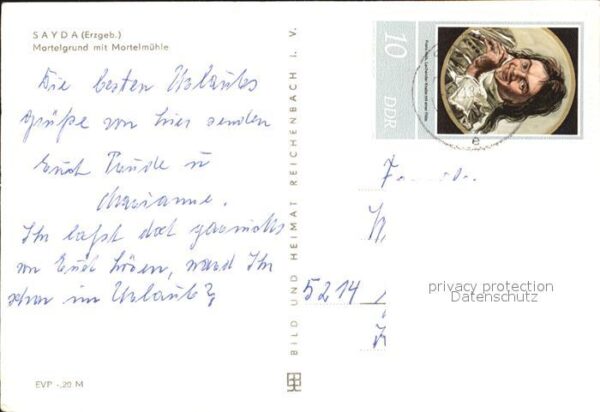 SAYDA (Erzgeb.)
Mortelgrund mit Mortelmühle
Die besten Urlaubs
grüße von hier senden
Euch
Marianne.
Ihr laßt doch garnichts
von Euch hören, ward Ihr
schon im Urlaub?
BILD UND HEIMAT REICHENBACH I. V.
EVP -,20 M
10
DDR
5214
privacy protection
Datenschutz